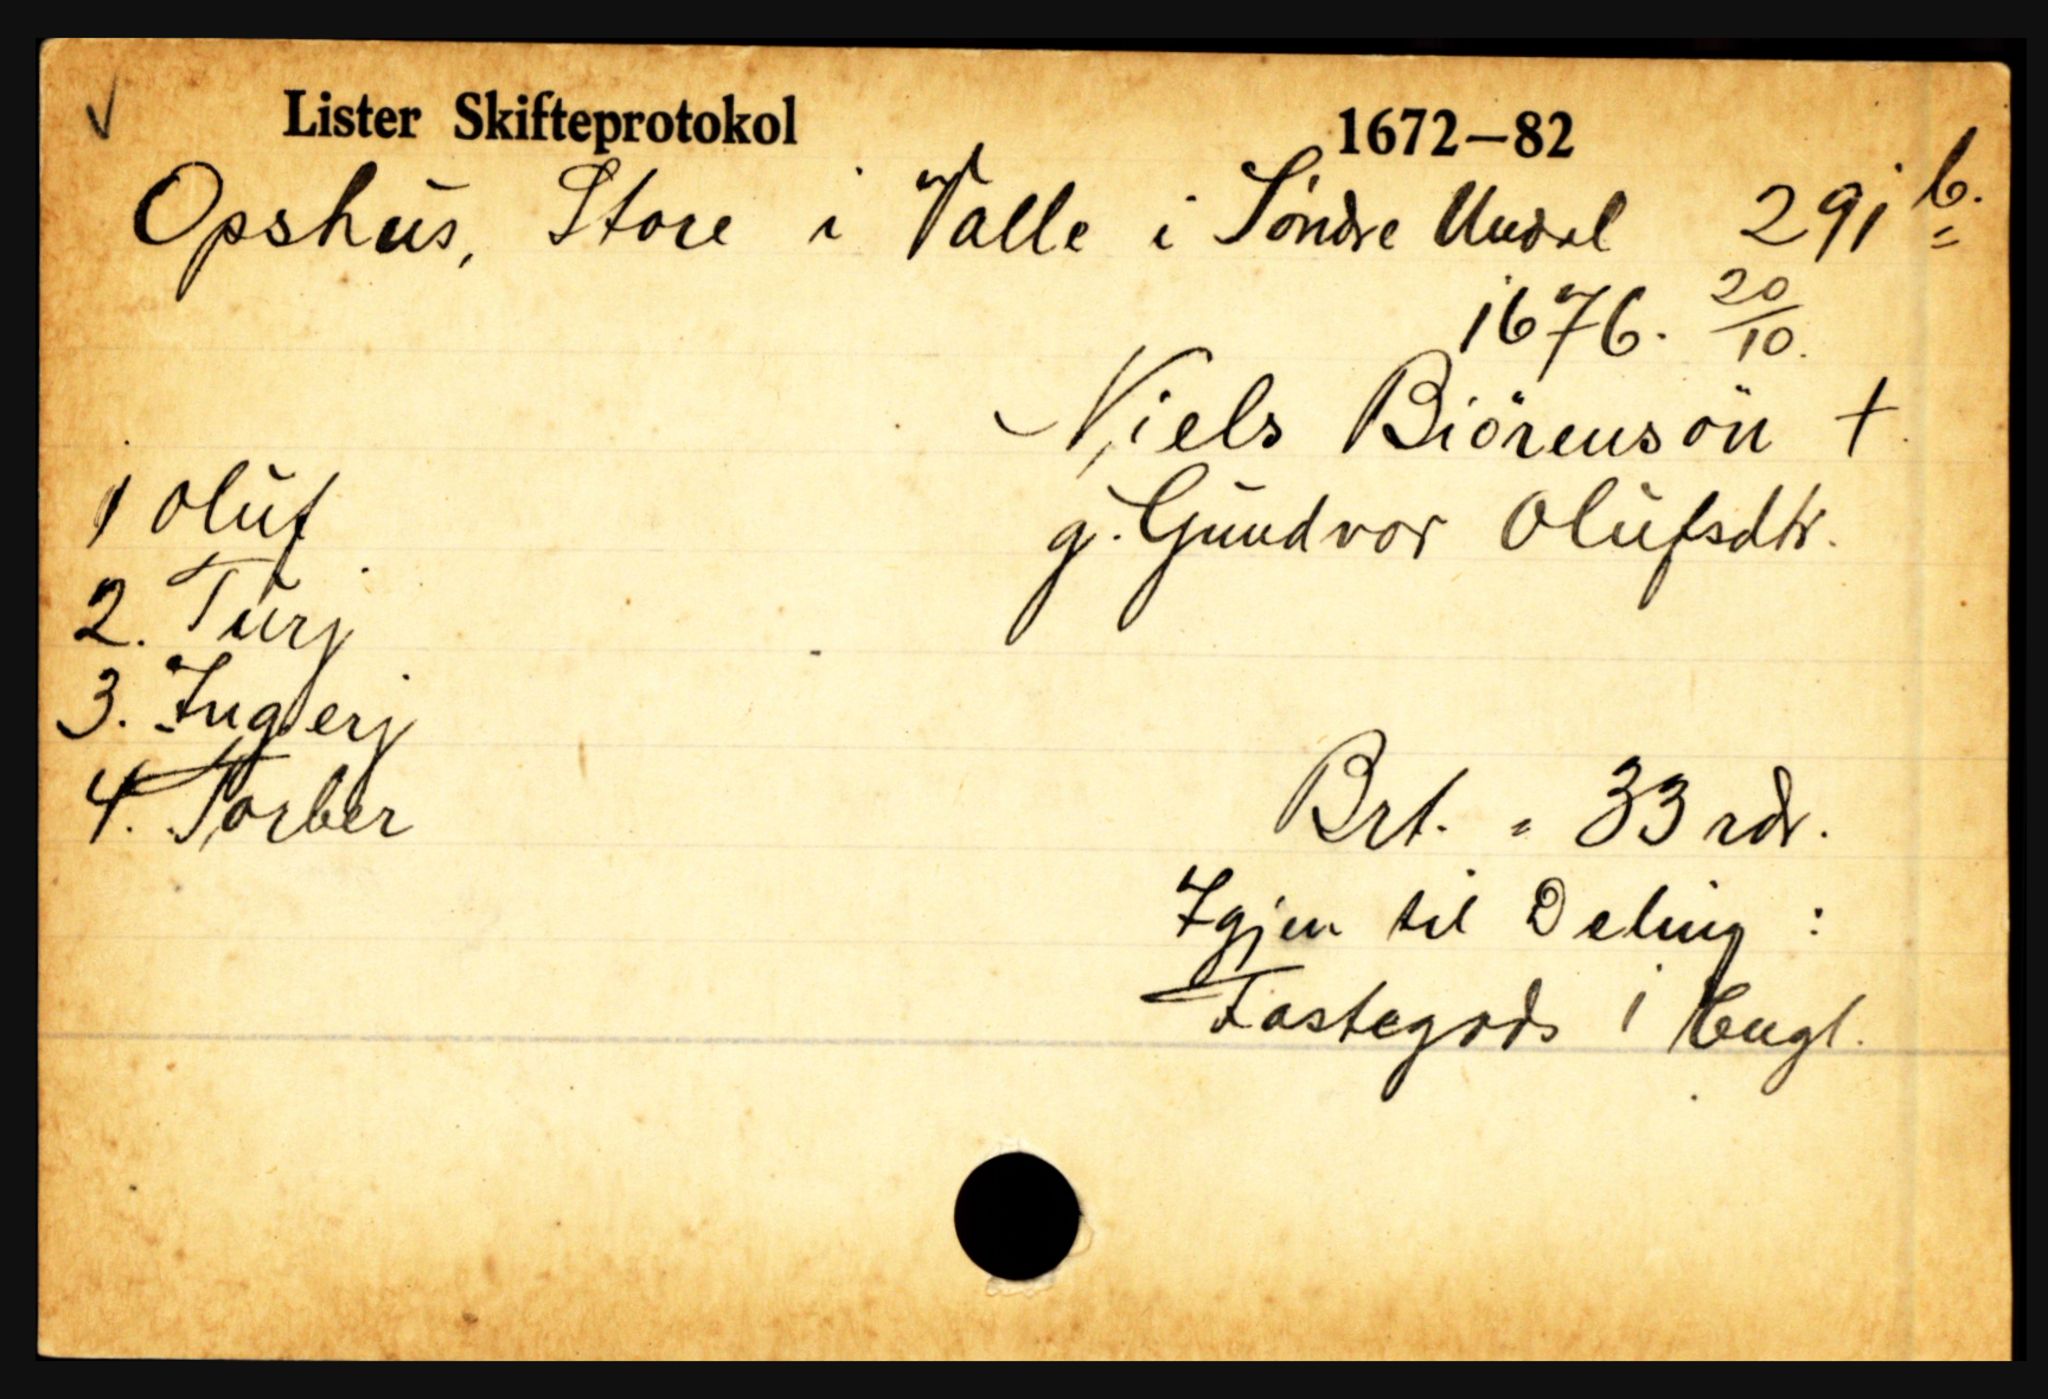 ✓ Lister Skifteprotokol 1672–82
Opshus, Store i Valle i Söndre Undal 291 b.
1676. 20/10.
Niels Biörensön †
g. Gundvor Olufsdtr.
1 Oluf
2. Turj
3. Ingerj
4. Torber
Brt. = 33 rdr.
Igjen til Deling :
Fastegods i Eugl.